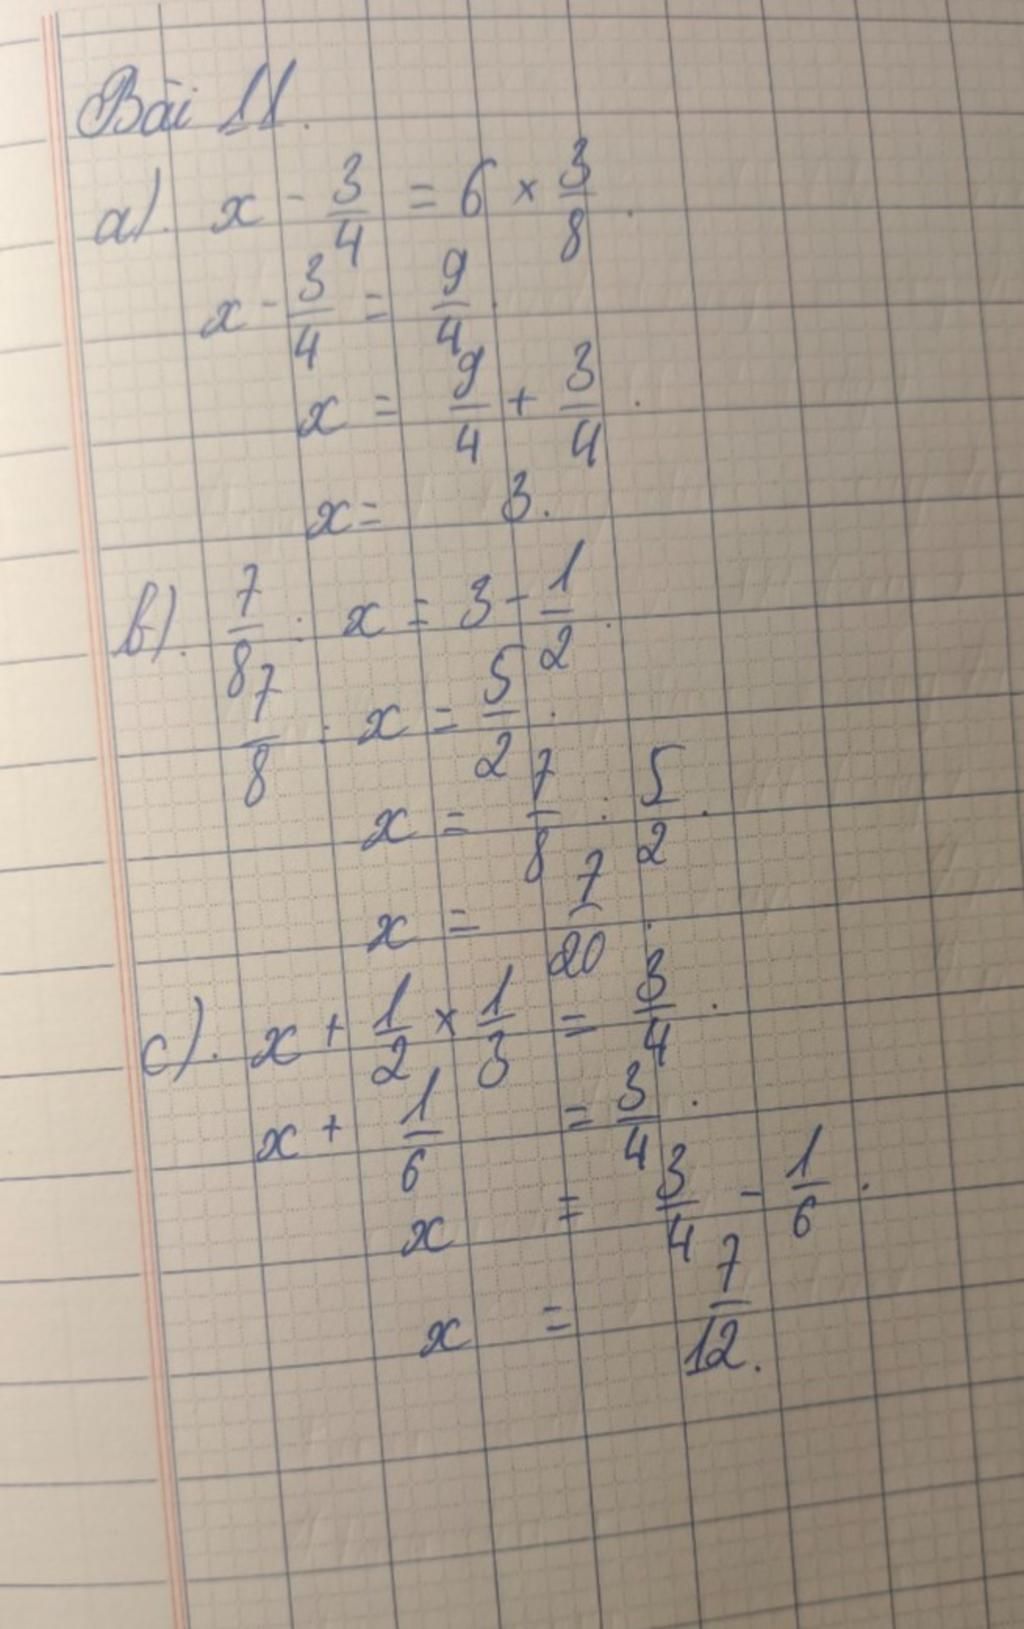 Bài 11.
a). x - 3/4 = 6 × 3/8.
x - 3/4 = 9/4.
x = 9/4 + 3/4.
x = 3.
b). 7/8 : x = 3 - 1/2.
7/8 : x = 5/2.
x = 7/8 : 5/2.
x = 7/20.
c). x + 1/2 × 1/3 = 3/4.
x + 1/6 = 3/4.
x = 3/4 - 1/6.
x = 7/12.